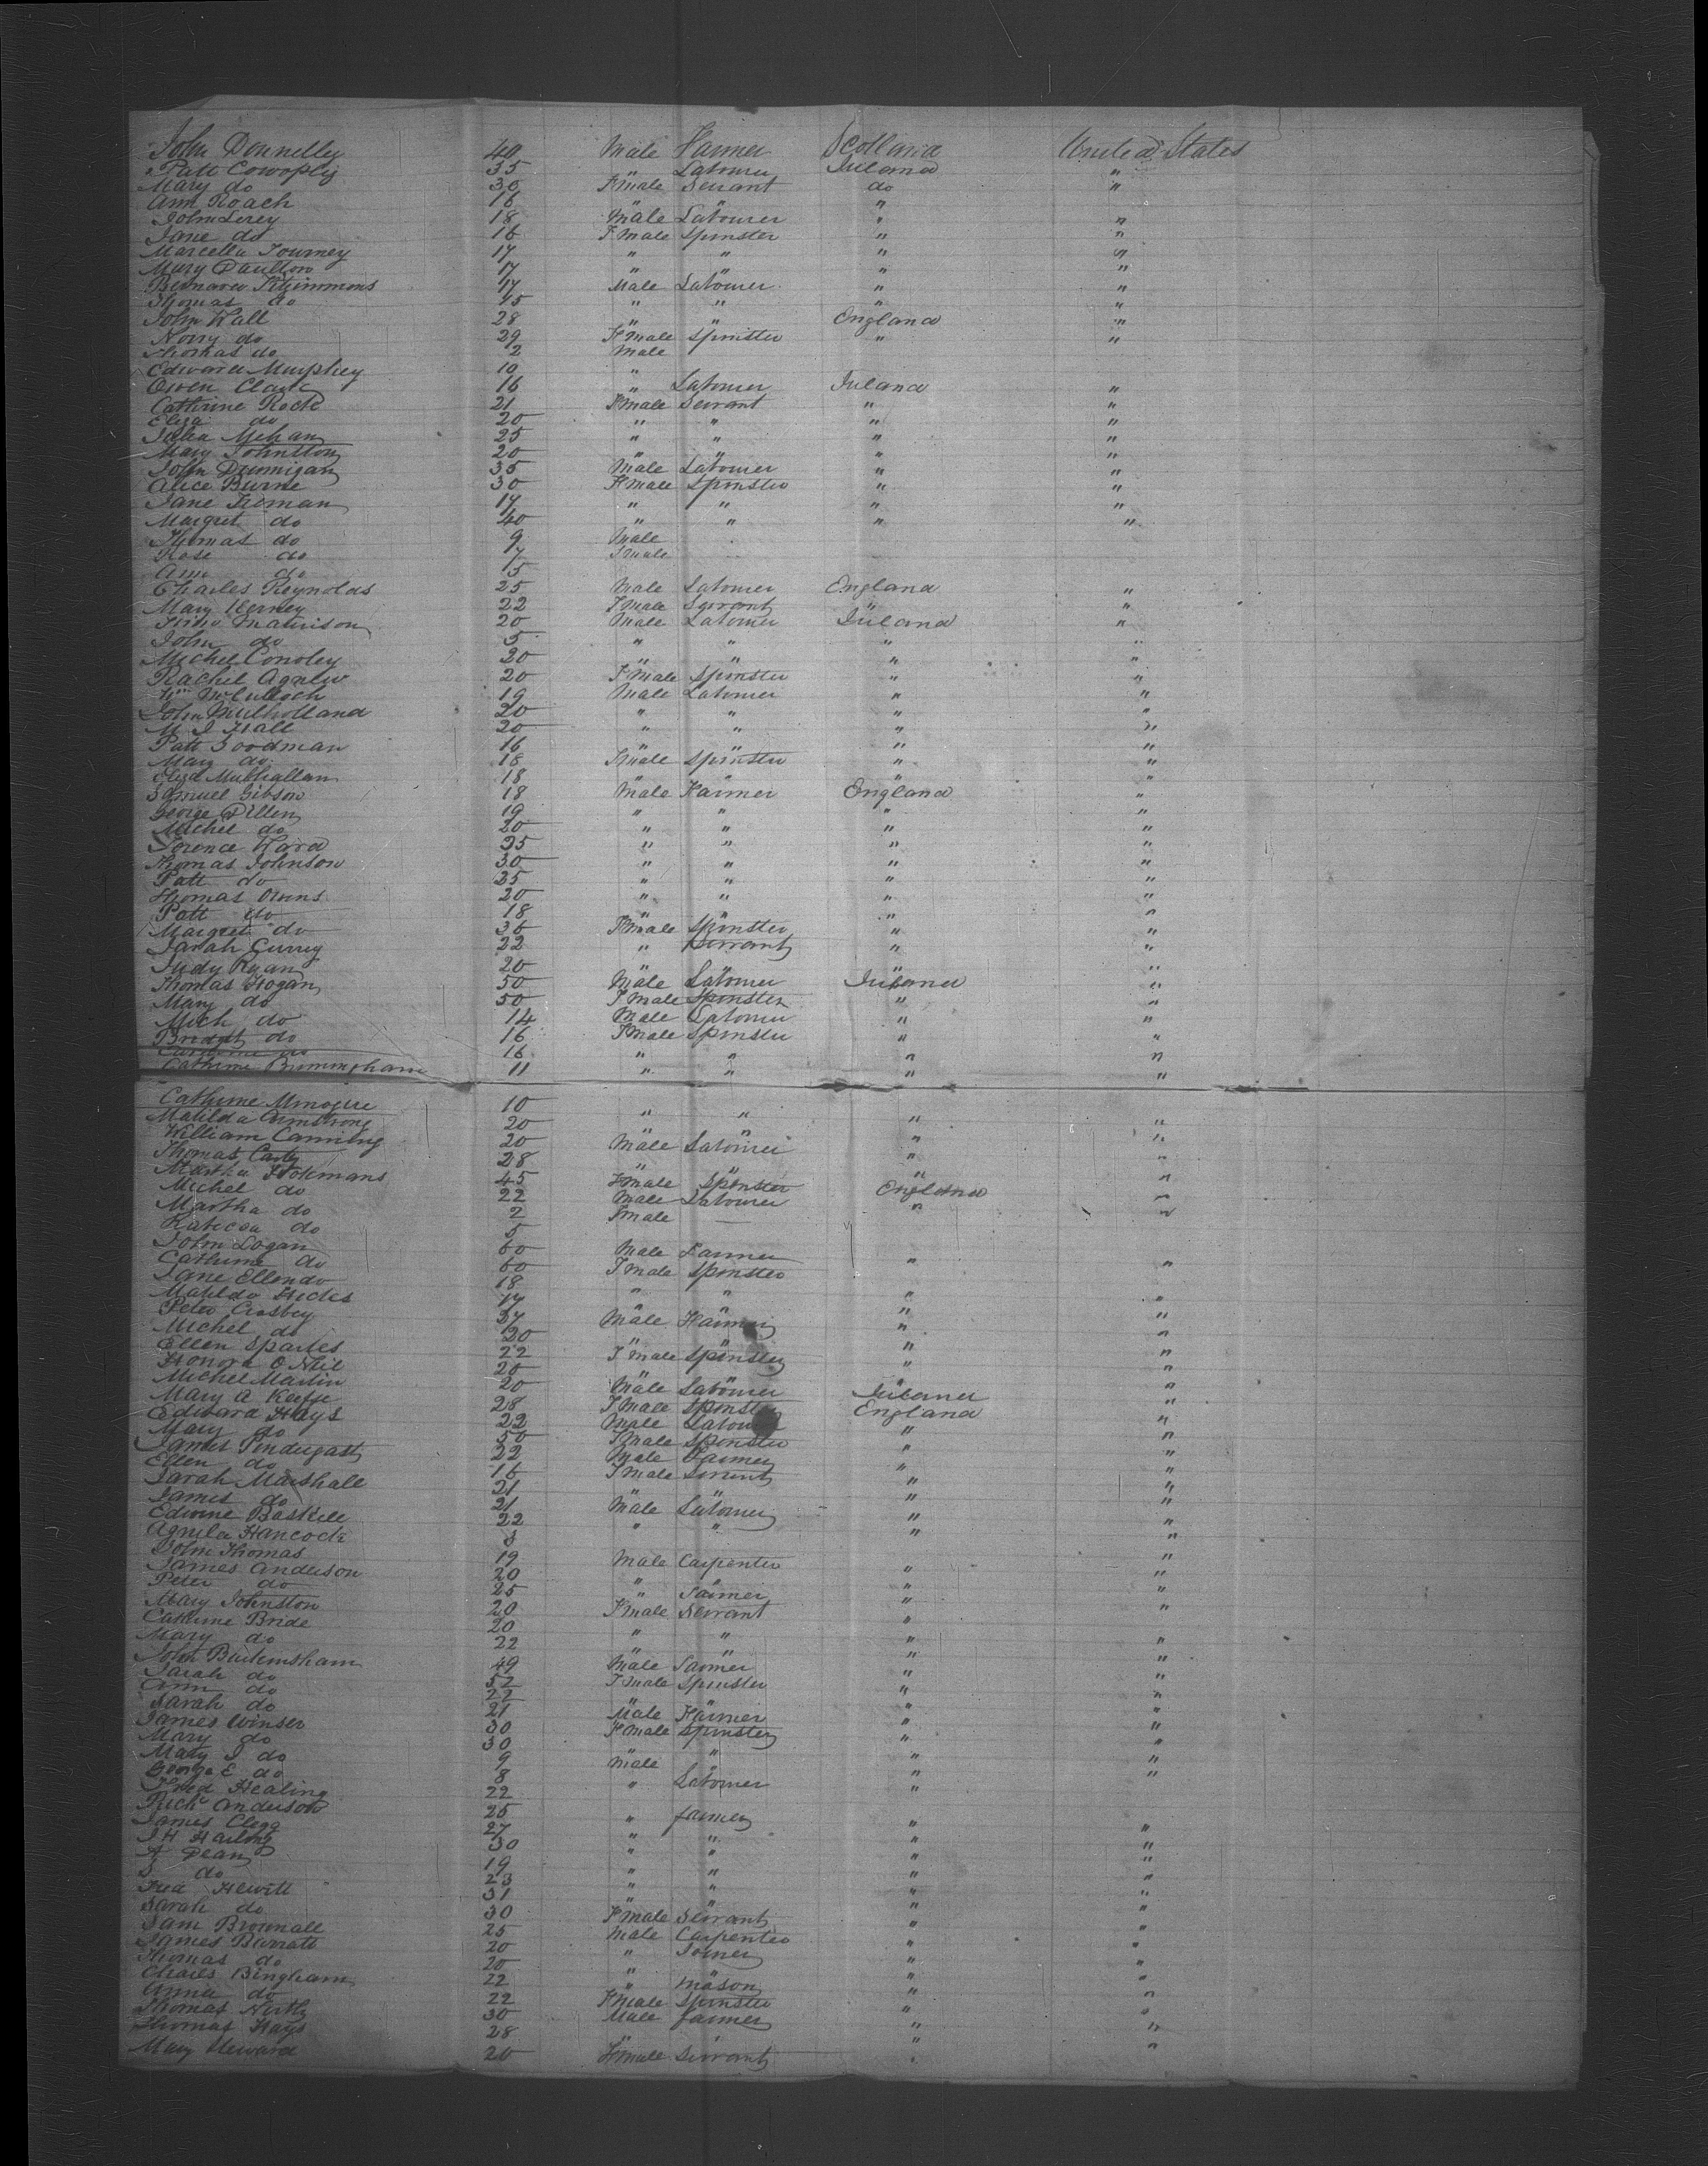 John Donnelly 40 Male Farmer Scotland United States
Patt 35 " Labourer Ireland "
Mary do 30 Fmale Servant do "
Ann Roach 16 " " "
John Lerey 18 Male Labourer " "
Jane do 16 Fmale Spinster " "
Marcella Tourney 17 " " " "
Mary Daulton 17 " " " "
Bernard Fitzimmons 17 Male Labourer " "
Thomas do 15 " " " "
John Wall 28 " " England "
Norry do 29 Fmale Spinster " "
Thomas do 2 Male
Edward Murphey 10 "
Owen Clark 16 " Labourer Ireland "
Catherine Rock 21 Fmale Servant " "
Eliza do 20 " " " "
Julia Mehan 25 " " " "
Mary Johnston 20 " " " "
John Drumigan 35 Male Labourer " "
Alice Burne 30 Fmale Spinster " "
Jane Kiernan 17 " " " "
Margret do 40 " " " "
Thomas do 9 Male
Rose do 7 Fmale
Ann do 15
Charles Reynolds 25 Male Labourer England "
Mary Kerney 22 Fmale Servant " "
Maurison 20 Male Labourer Ireland "
John do 5 " " " "
Michel Conoley 20 " " " "
Rachel Agnew 20 Fmale Spinster " "
Wm McCulloch 19 Male Labourer " "
John Mulholland 20 " " " "
M J Hall 20 " " " "
Patt Goodman 16 " " " "
Mary do 18 Fmale Spinster " "
Eliza Mulhallan 18 " " " "
Samuel Gibson 18 Male Farmer England "
George Dillen 19 " " " "
Michel do 20 " " " "
Torence Ward 35 " " " "
Thomas Johnson 30 " " " "
Patt do 25 " " " "
Thomas Owns 20 " " " "
Patt do 18 " " " "
Margret do 36 Fmale Spinster " "
Sarah Currey 22 " Servant " "
Judy Ryan 20 " " "
Thomas Hogan 50 Male Labourer Ireland "
Mary do 50 Fmale Spinster " "
Mich do 14 Male Labourer " "
Bridget do 16 Fmale Spinster " "
Catherine do 16 " " " "
Catherine Brimingham 11 " " " "
Catherine Minogue 10 " " " "
Matilda Armstrong 20 " " " "
William Canning 20 Male Labourer " "
Thomas 28 " " " "
Martha 45 Fmale Spinster " "
Michel do 22 Male Labourer England "
Martha do 2 Fmale — " "
do 5
John Logan 60 Male Farmer " "
Catherine do 60 Fmale Spinster
Jane Ellen do 18 " " " "
Matilda Hicks 17 " " " "
Peter Crosbey 37 Male Farmer " "
Michel do 20 " " " "
Ellen Sparkes 22 Fmale Spinster " "
Honora O Neil 20 " " " "
Michel Martin 20 Male Labourer Ireland "
Mary A Keeffe 28 Fmale Spinster England "
Edward Hays 22 Male Labourer " "
Mary do 50 Fmale Spinster " "
James Pendergast 22 Male Farmer " "
Ellen do 16 Fmale Servent " "
Sarah Marshall 21 " " " "
James do 21 Male Labourer " "
Edwine Baskill 22 " " " "
Hancock 3 "
John Thomas 19 Male Carpenter " "
James Anderson 20 " " " "
Peter do 25 " Farmer " "
Mary Johnston 20 Fmale Servant "
Catherine Bride 20 " " " "
Mary do 22 " " " "
John 49 Male Farmer " "
Sarah do 52 Fmale Spinster " "
Ann do 22 " " " "
Sarah do 21 Male Farmer " "
James Winser 30 Fmale Spinster " "
Mary do 30 " " " "
Mary J do 9 Male " "
George E do 8 " Labourer "
Fred Healing 22
Richd Anderson 25 " farmer " "
James Clegg 27 " " " "
J H 30 " " " "
Dean 19 " " " "
do 23 " " " "
Fred Hewitt 31 " " " "
Sarah do 30 Fmale Servant " "
Sam Brownall 25 Male Carpenter " "
James Barratt 20 " Joiner " "
Thomas do 20 " " " "
Charles Bingham 22 " Mason " "
Annie do 22 Fmale Spinster " "
Thomas 30 Male farmer " "
Thomas Hays 28 " " " "
Mary 20 Fmale Servant "